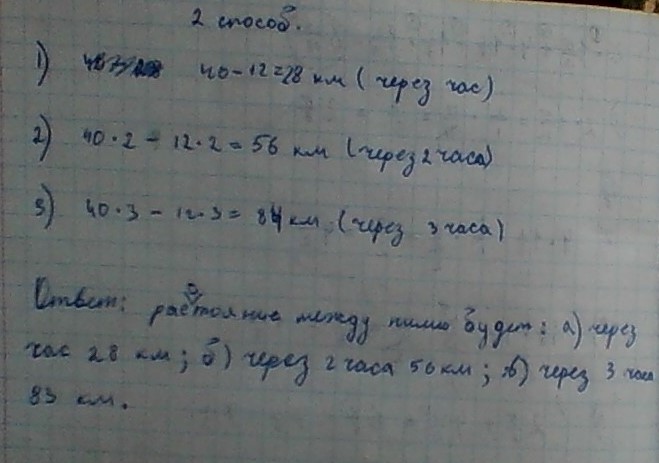 2 способ.
1) 40-12=28 км (через час)
2) 40·2 - 12·2 = 56 км (через 2 часа)
3) 40·3 - 12·3 = 84 км (через 3 часа)
Ответ: расстояние между ними будет: а) через
час 28 км; б) через 2 часа 56 км; в) через 3 часа
83 км.